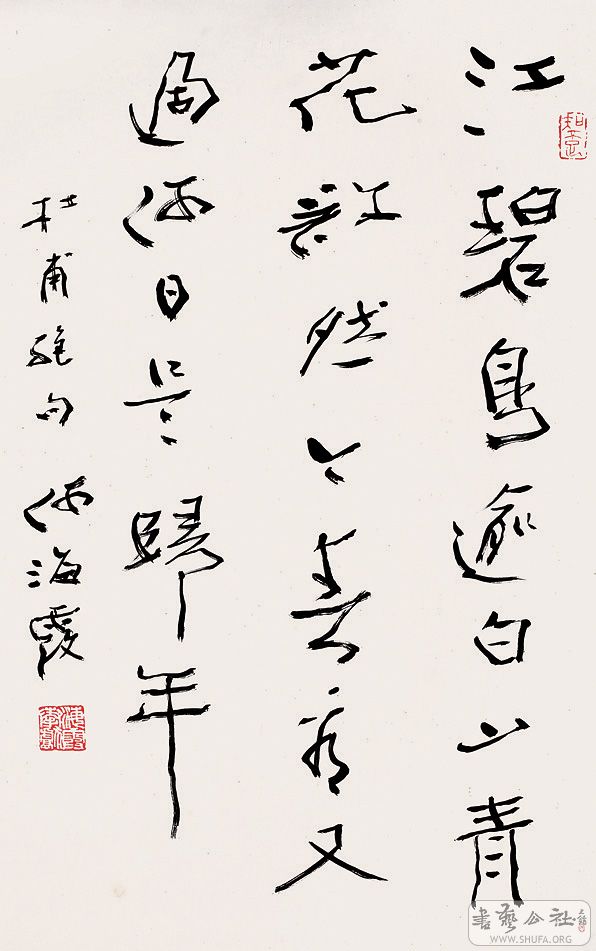 江碧鳥逾白山青
花欲然今春看又
過何日是歸年
杜甫絕句 何海霞
書藝公社
WWW.SHUFA.ORG